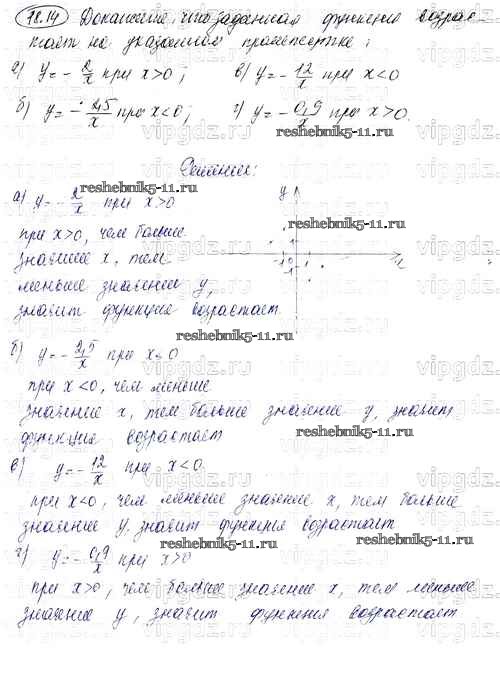 18.14 Докажите, что заданная функция возрас-
тает на указанном промежутке:
а) y = - 2/x при x>0; в) y = - 12/x при x<0
б) y = - 2,5/x при x<0; г) y = - 0,9/x при x>0.
Решение:
reshebnik5-11.ru
а) y = - 2/x при x>0
y
reshebnik5-11.ru
при x>0, чем больше
1
значение x, тем
-1 0 1 x
-1
меньше значение y,
значит функция возрастает.
reshebnik5-11.ru
б) y = - 2,5/x при x<0
при x<0, чем меньше
значение x, тем больше значение y, значит
reshebnik5-11.ru
функция возрастает
в) y = - 12/x при x<0
reshebnik5-11.ru
при x<0, чем меньше значение x, тем больше
значение y, значит функция возрастает
reshebnik5-11.ru
г) y = - 0,9/x при x>0
при x>0, чем больше значение x, тем меньше
значение y, значит функция возрастает
vipgdz.ru